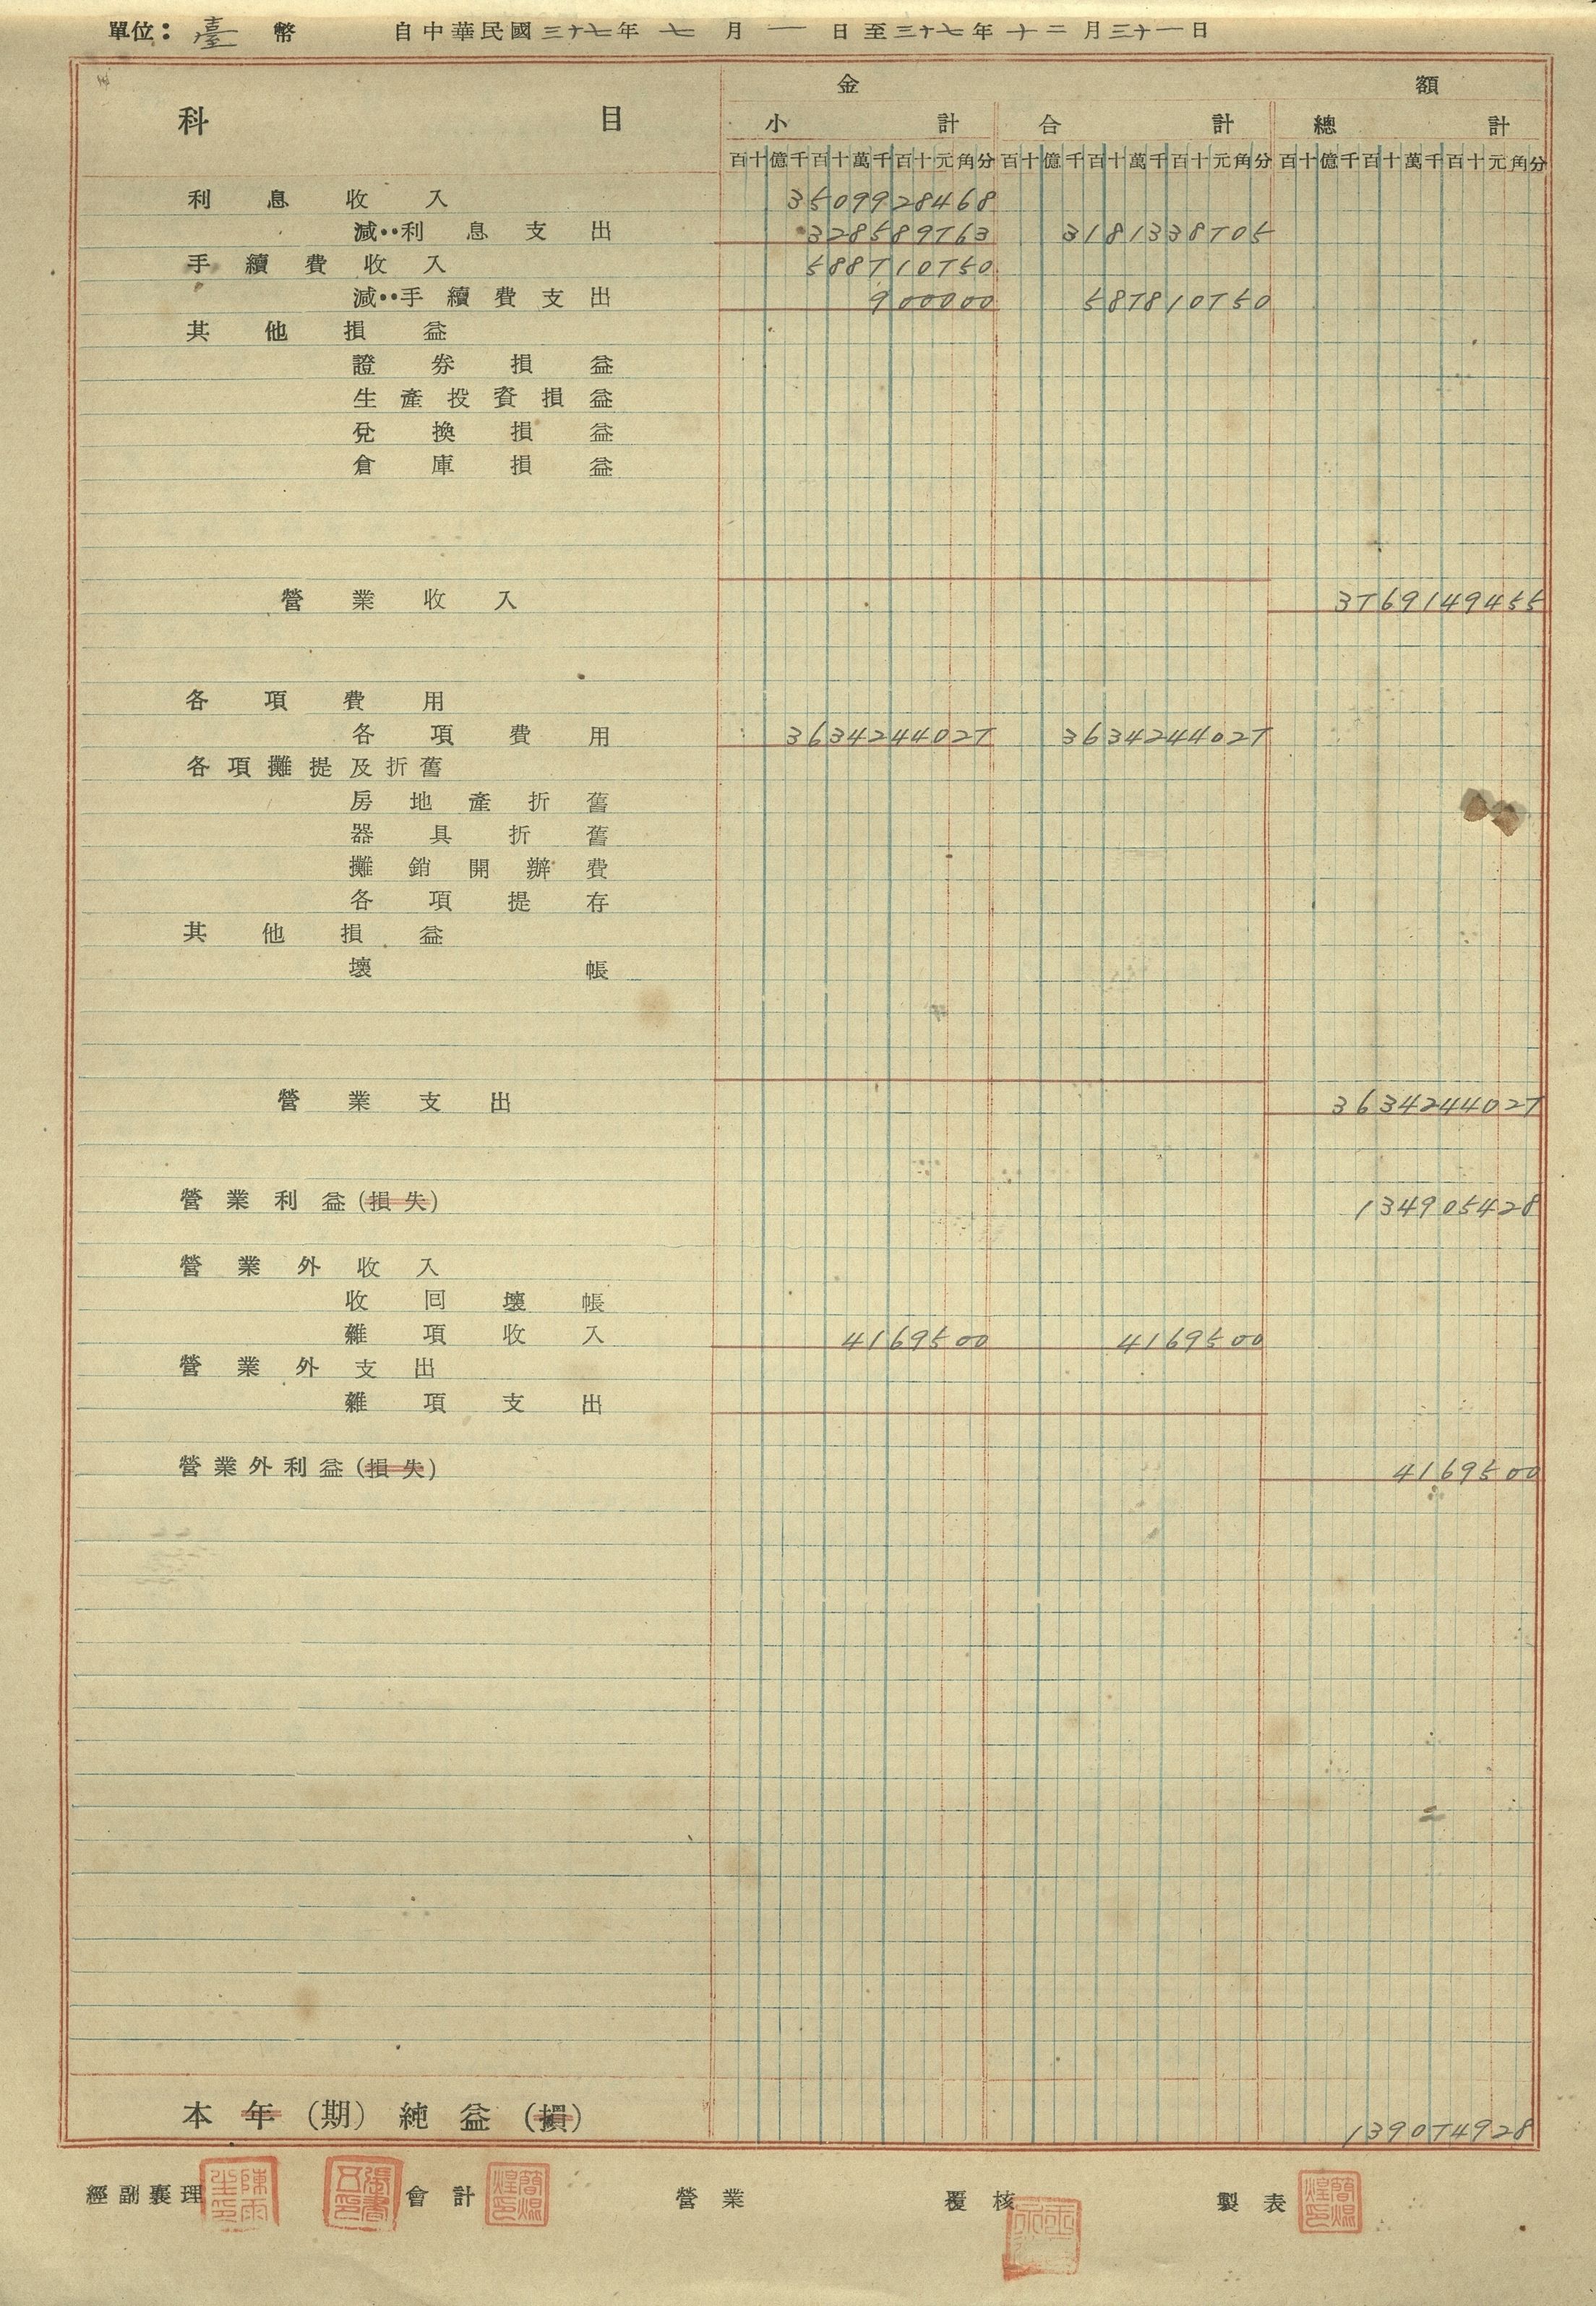 單位：臺幣 自中華民國三十七年七月一日至三十七年十二月三十一日
科目 金額
小計 合計 總計
百十億千百十萬千百十元角分 百十億千百十萬千百十元角分 百十億千百十萬千百十元角分
利息收入 3509928468
減：利息支出 328589763 3181338705
手續費收入 588710750
減：手續費支出 900000 587810750
其他損益
證券損益
生產投資損益
兌換損益
倉庫損益
營業收入 3769149455
各項費用
各項費用 3634244027 3634244027
各項攤提及折舊
房地產折舊
器具折舊
攤銷開辦費
各項提存
其他損益
壞帳
營業支出 3634244027
營業利益(損失) 134905428
營業外收入
收回壞帳
雜項收入 4169500 4169500
營業外支出
雜項支出
營業外利益(損失) 4169500
本年(期)純益(損) 139074928
經副襄理 會計 營業 覆核 製表